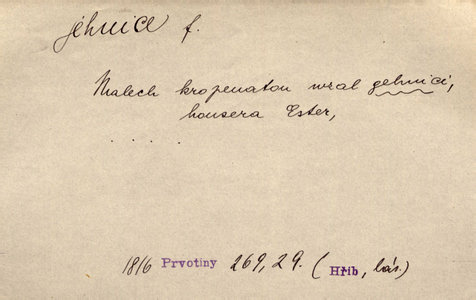 jehnice f.
Malech kropenatou wzal gehnici,
housera Ester,
. . . . .
1816 Prvotiny 269, 29. (Hřib, bás.)